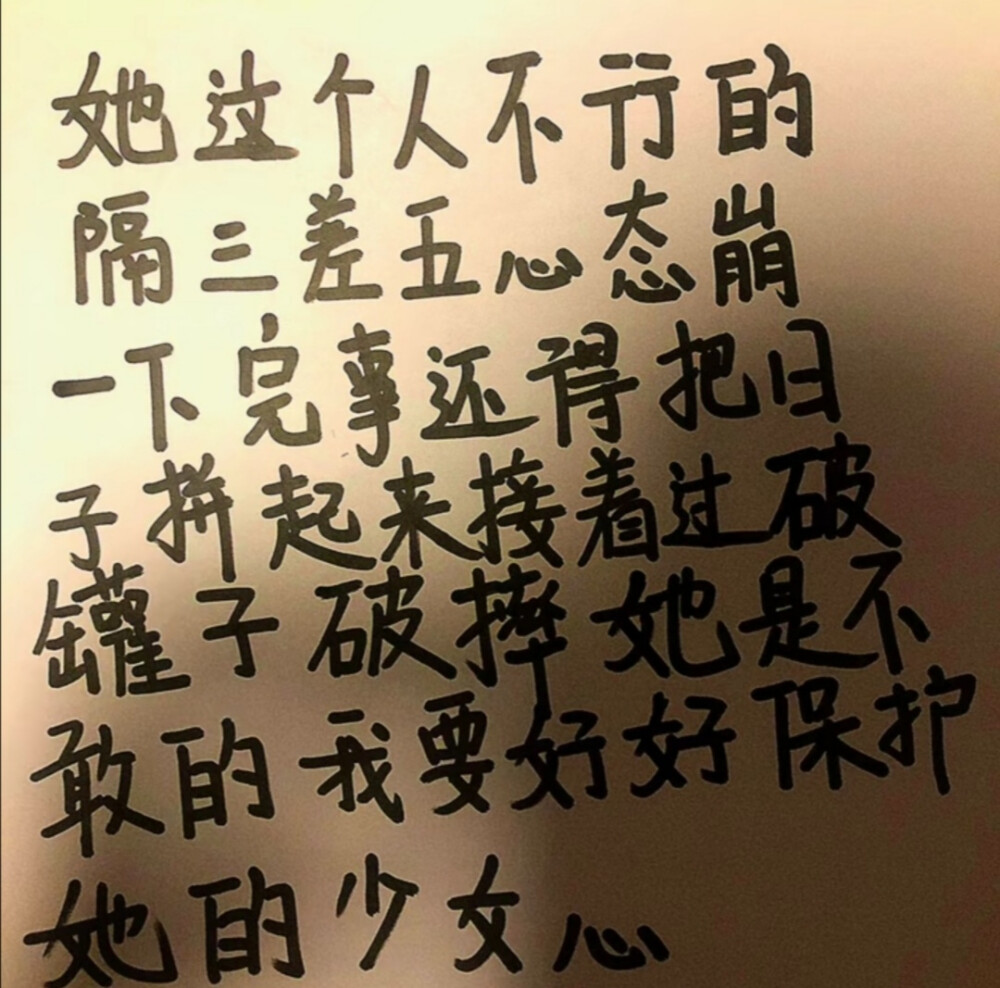 她这个人不行的
隔三差五心态崩
一下完事还得把日
子拼起来接着过破
罐子破摔她是不
敢的我要好好保护
她的少女心